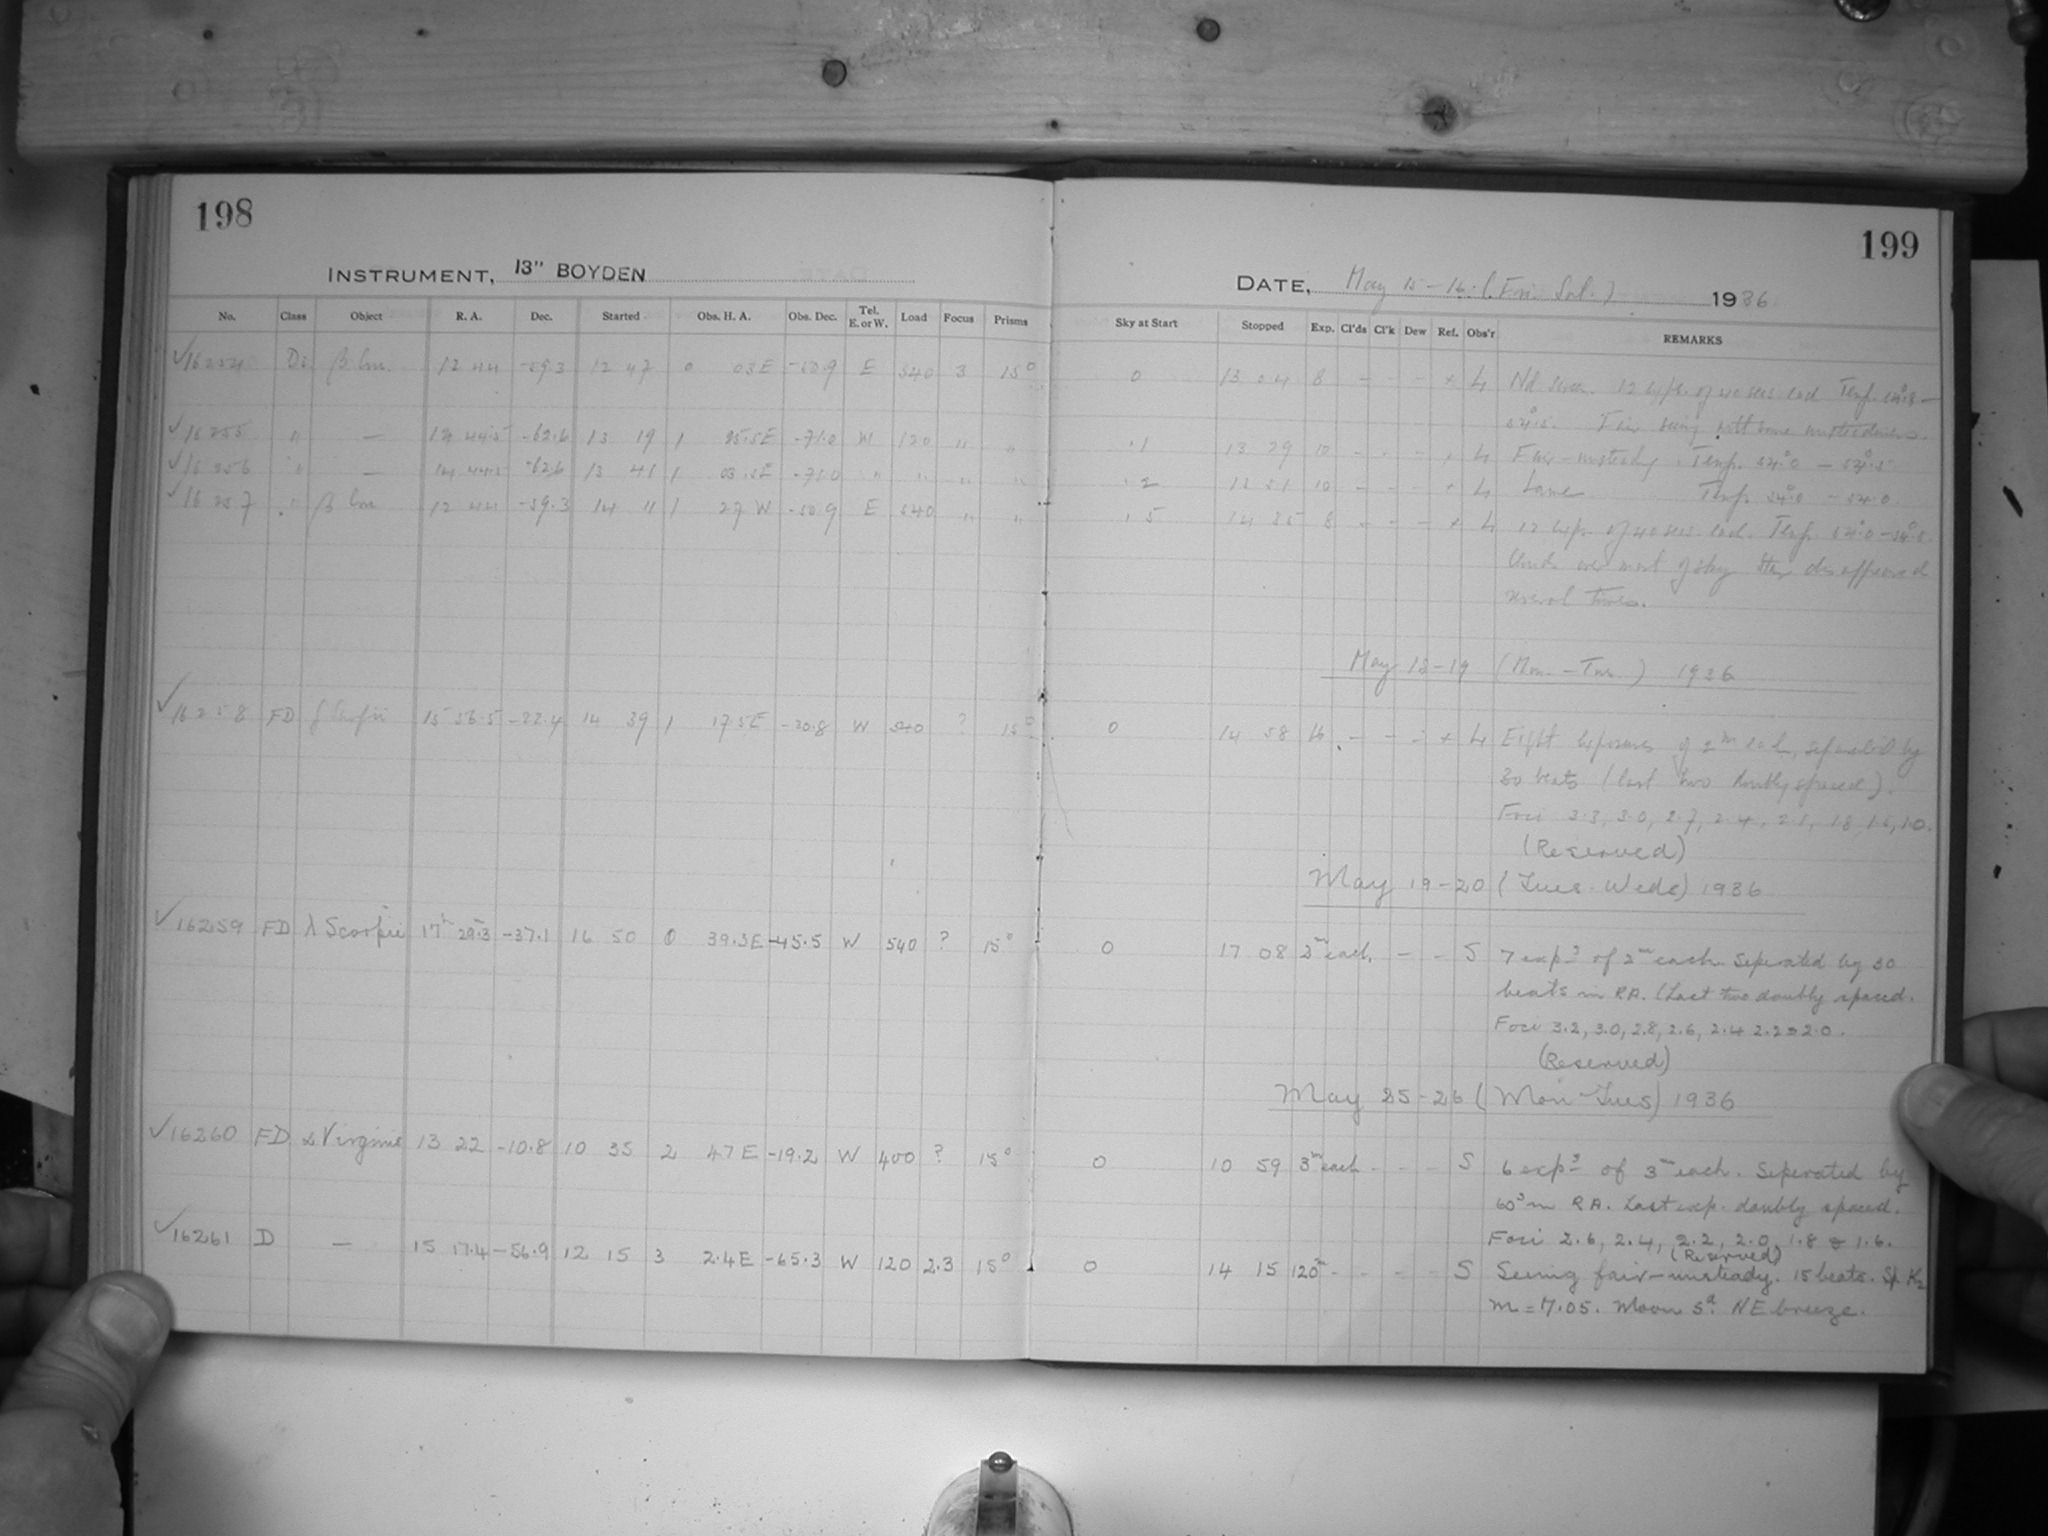 198
199
INSTRUMENT, 13" BOYDEN
DATE, May 15-16 (Fri. Sat.) 1936
No. Class Object R. A. Dec. Started Obs. H. A. Obs. Dec. Tel. E. or W. Load Focus Prisms Sky at Start Stopped Exp. Cl'ds Cl'k Dew Ref. Obs'r REMARKS
✓16254 12 44 -59.3 12 47 0 03 E E 540 3 15° 0 13 04 8 - - - + L 12 exps. of 40 secs. each Temp.
Fair seeing with some unsteadiness.
✓16255 " — -62.6 13 19 1 -71.0 W 120 " " .1 13 29 10 - - - + L Fair-unsteady. Temp. 54°.0 - 54°.5
✓16256 " — -62.6 13 41 1 -71.0 " " " " .2 13 51 10 - - - + L Same Temp. 54°.0 - 54.0
✓16257 " 12 44 -59.3 14 11 1 27 W E 540 " " .5 14 8 - - - + L 12 exps. of 40 secs. each. Temp.
Clouds over most of sky. Star disappeared
several times.
May 18-19 (Mon.-Tues.) 1936
✓16258 FD 15 56.5 -22.4 14 39 1 17.5E -30.8 W 540 ? 15° 0 14 58 16 - - - + L Eight exposures of 2m each, separated by
30 beats (last two doubly spaced).
Foci 3.3, 3.0, 2.7, 2.4, 2.1, 1.8, 1.5, 1.0.
(Reserved)
May 19-20 (Tues-Weds) 1936
✓16259 FD λ Scorpii 17h 29.3 -37.1 16 50 0 39.3E -45.5 W 540 ? 15° 0 17 08 2m each. - - S 7 exps of 2m each. Seperated by 30
beats in RA. (Last two doubly spaced.
Foci 3.2, 3.0, 2.8, 2.6, 2.4 2.2 & 2.0.
(Reserved)
May 25-26 (Mon-Tues) 1936
✓16260 FD α Virginis 13 22 -10.8 10 35 2 47 E -19.2 W 400 ? 15° 0 10 59 3m each - - - S 6 exps of 3m each. Seperated by
60s in RA. Last exp. doubly spaced.
Foci 2.6, 2.4, 2.2, 2.0, 1.8 & 1.6.
(Reserved)
✓16261 D — 15 17.4 -56.9 12 15 3 2.4E -65.3 W 120 2.3 15° 0 14 15 120m - - - - S Seeing fair-unsteady. 15 beats. Sp. K2
m = 7.05. Moon 5d. NE breeze.